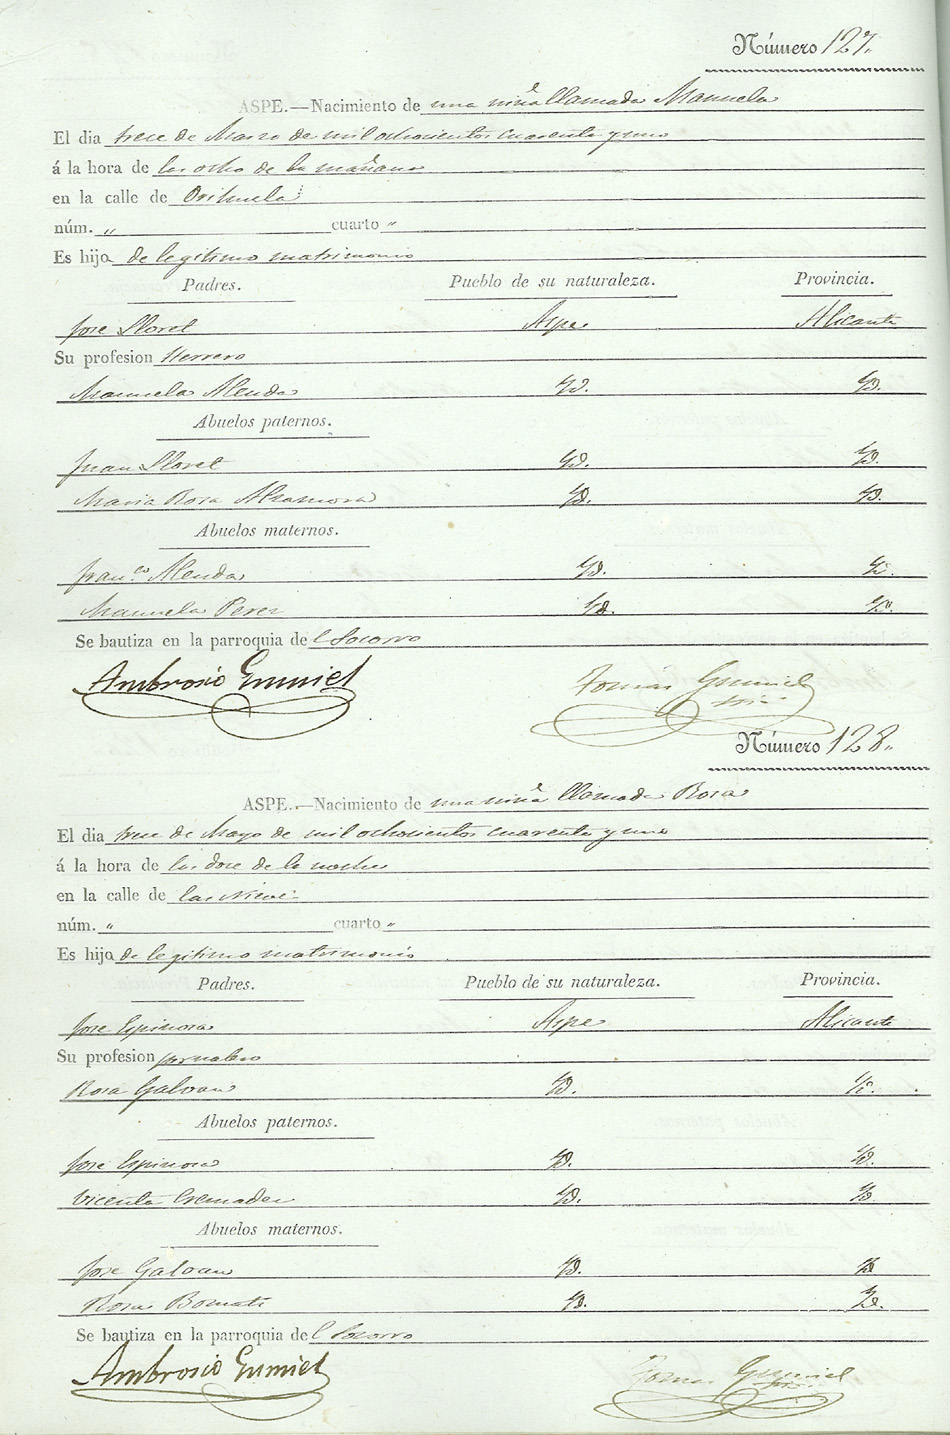 Número 127.
ASPE.—Nacimiento de una niña llamada Manuela
El dia trece de Marzo de mil ochocientos cuarenta y uno
á la hora de las ocho de la mañana
en la calle de Orihuela
núm. „ cuarto „
Es hija de legitimo matrimonio
Padres. Pueblo de su naturaleza. Provincia.
Jose Lloret Aspe Alicante
Su profesion Herrero
Manuela Alenda Yd. Yd.
Abuelos paternos.
Juan Lloret Yd. Yd.
Maria Rosa Alzamora Yd. Yd.
Abuelos maternos.
Fran.co Alenda Yd. Yd.
Manuela Perez Yd. Yd.
Se bautiza en la parroquia del Socorro
Ambrosio Gumiel Tomas Gumiel
Número 128.
ASPE.—Nacimiento de una niña llamada Rosa
El dia trece de Mayo de mil ochocientos cuarenta y uno
á la hora de las doce de la noche
en la calle de las Nieve
núm. „ cuarto „
Es hija de legitimo matrimonio
Padres. Pueblo de su naturaleza. Provincia.
Jose Espinosa Aspe Alicante
Su profesion jornalero
Rosa Galvan Yd. Yd.
Abuelos paternos.
Jose Espinosa Yd. Yd.
Vicenta Cremades Yd. Yd.
Abuelos maternos.
Jose Galvan Yd. Yd.
Rosa Bonmati Yd. Yd.
Se bautiza en la parroquia del Socorro
Ambrosio Gumiel Tomas Gumiel